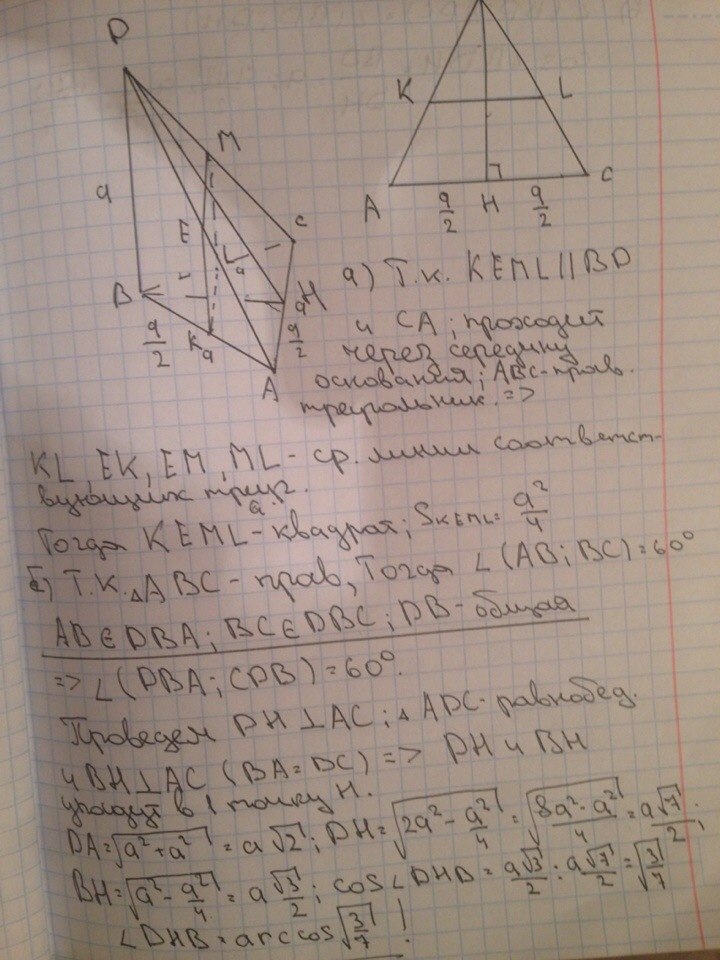 D
M
K
L
a
C
E
A
H
C
L
a/2
a/2
a
B
H
a
a/2
a/2
K
a
A
a) Т.к. KEML || BD
и CA; проходит
через середину
основания; ABC-прав.
треугольник. =>
KL, EK, EM, ML - ср. линии соответст-
вующих треуг.
Тогда KEML - квадрат; S KEML = a²/4
б) Т.к. △ABC - прав, Тогда ∠(AB; BC) = 60°
AB ∈ DBA; BC ∈ DBC; DB - общая
=> ∠(DBA; CDB) = 60°.
Проведем DH ⊥ AC; △ ADC - равнобед.
и BH ⊥ AC (BA = DC) => DH и BH
упадут в 1 точку H.
DA = √(a² + a²) = a√2; DH = √(2a² - a²/4) = √((8a² - a²)/4) = a√7/2;
BH = √(a² - a²/4) = a√3/2; cos∠DHB = a√3/2 : a√7/2 = √(3/7)
∠DHB = arccos√(3/7) !